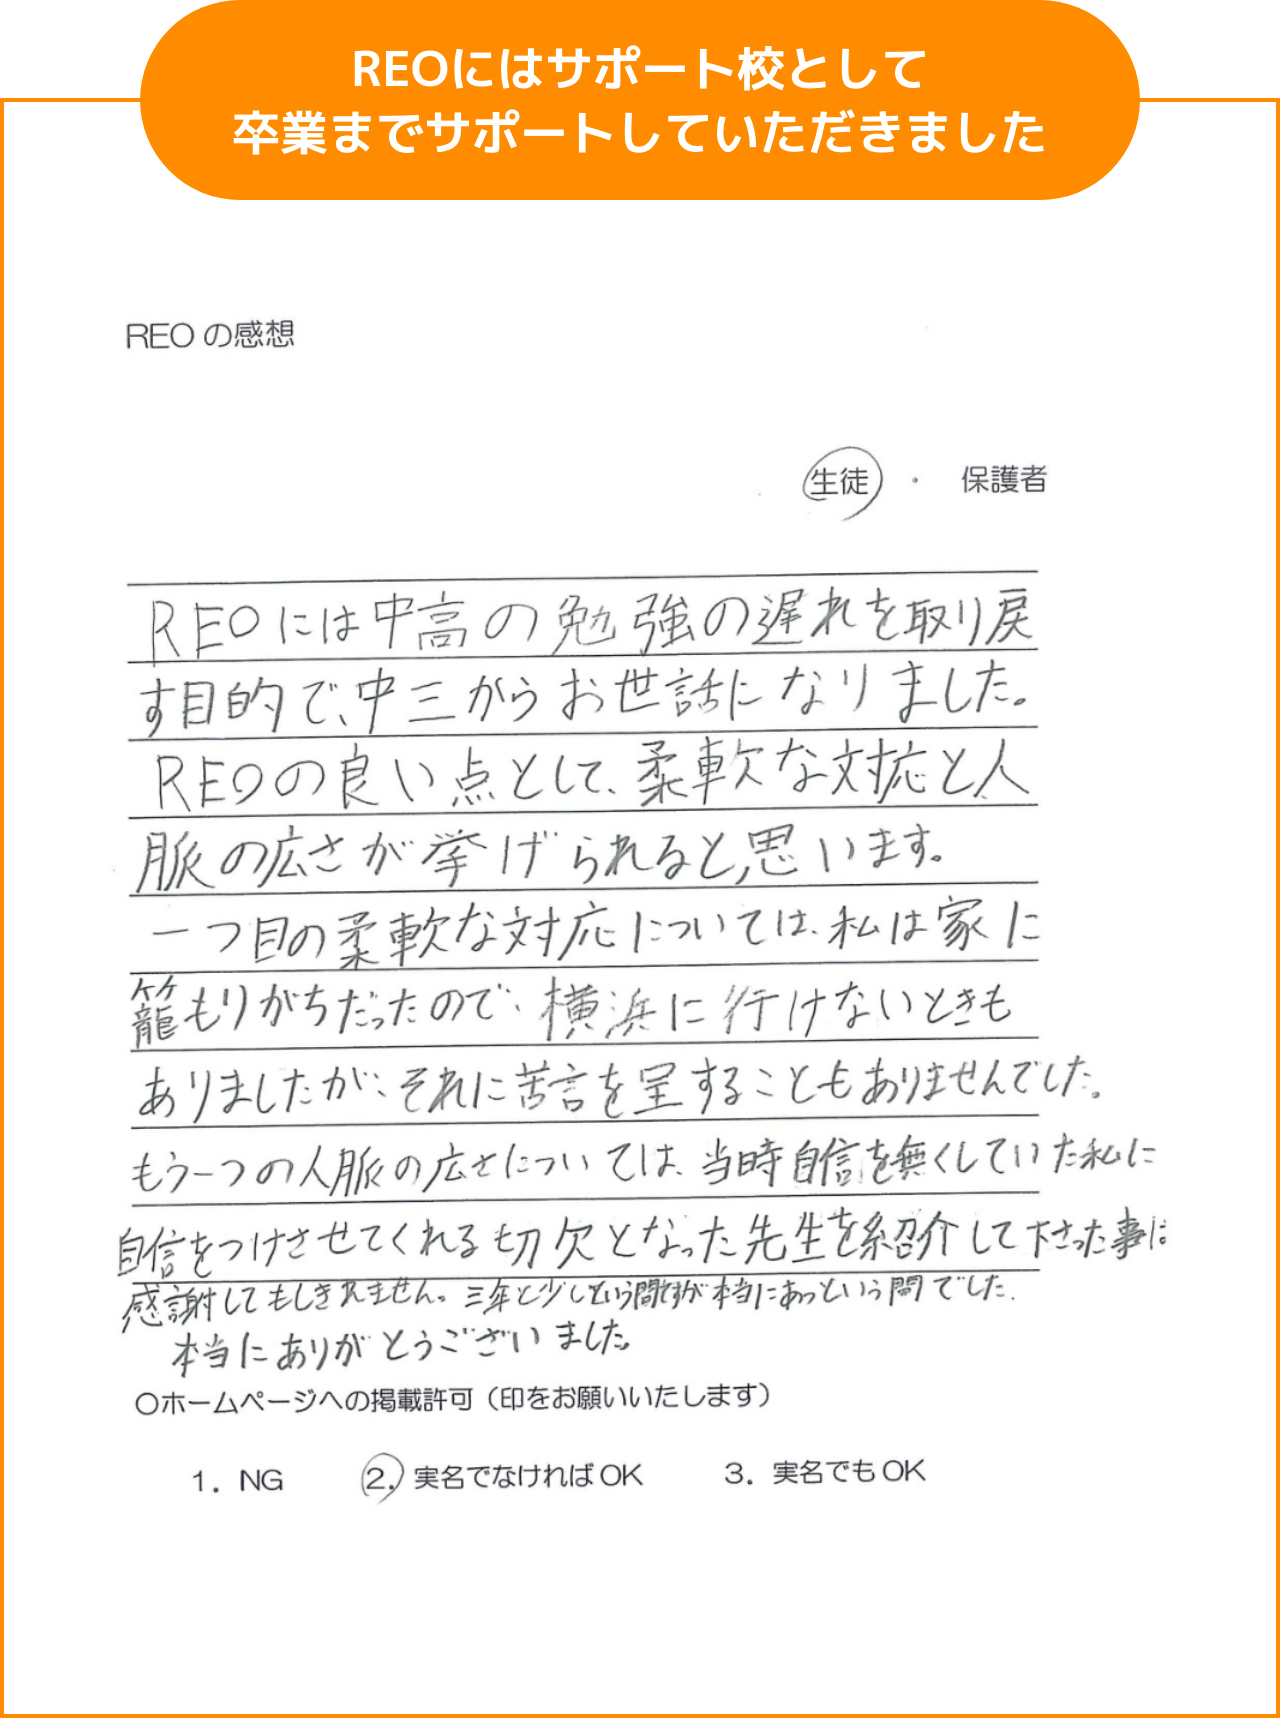 REOにはサポート校として
卒業までサポートしていただきました
REOの感想
生徒 ・ 保護者
REOには中高の勉強の遅れを取り戻
す目的で、中三からお世話になりました。
REOの良い点として、柔軟な対応と人
脈の広さが挙げられると思います。
一つ目の柔軟な対応については、私は家に
籠もりがちだったので、横浜に行けないときも
ありましたが、それに苦言を呈することもありませんでした。
もう一つの人脈の広さについては、当時自信を無くしていた私に
自信をつけさせてくれる切欠となった先生を紹介して下さった事に
感謝してもしきれません。三年と少しという間ですが本当にあっという間でした。
本当にありがとうございました。
〇ホームページへの掲載許可（印をお願いいたします）
1．NG 2．実名でなければOK 3．実名でもOK